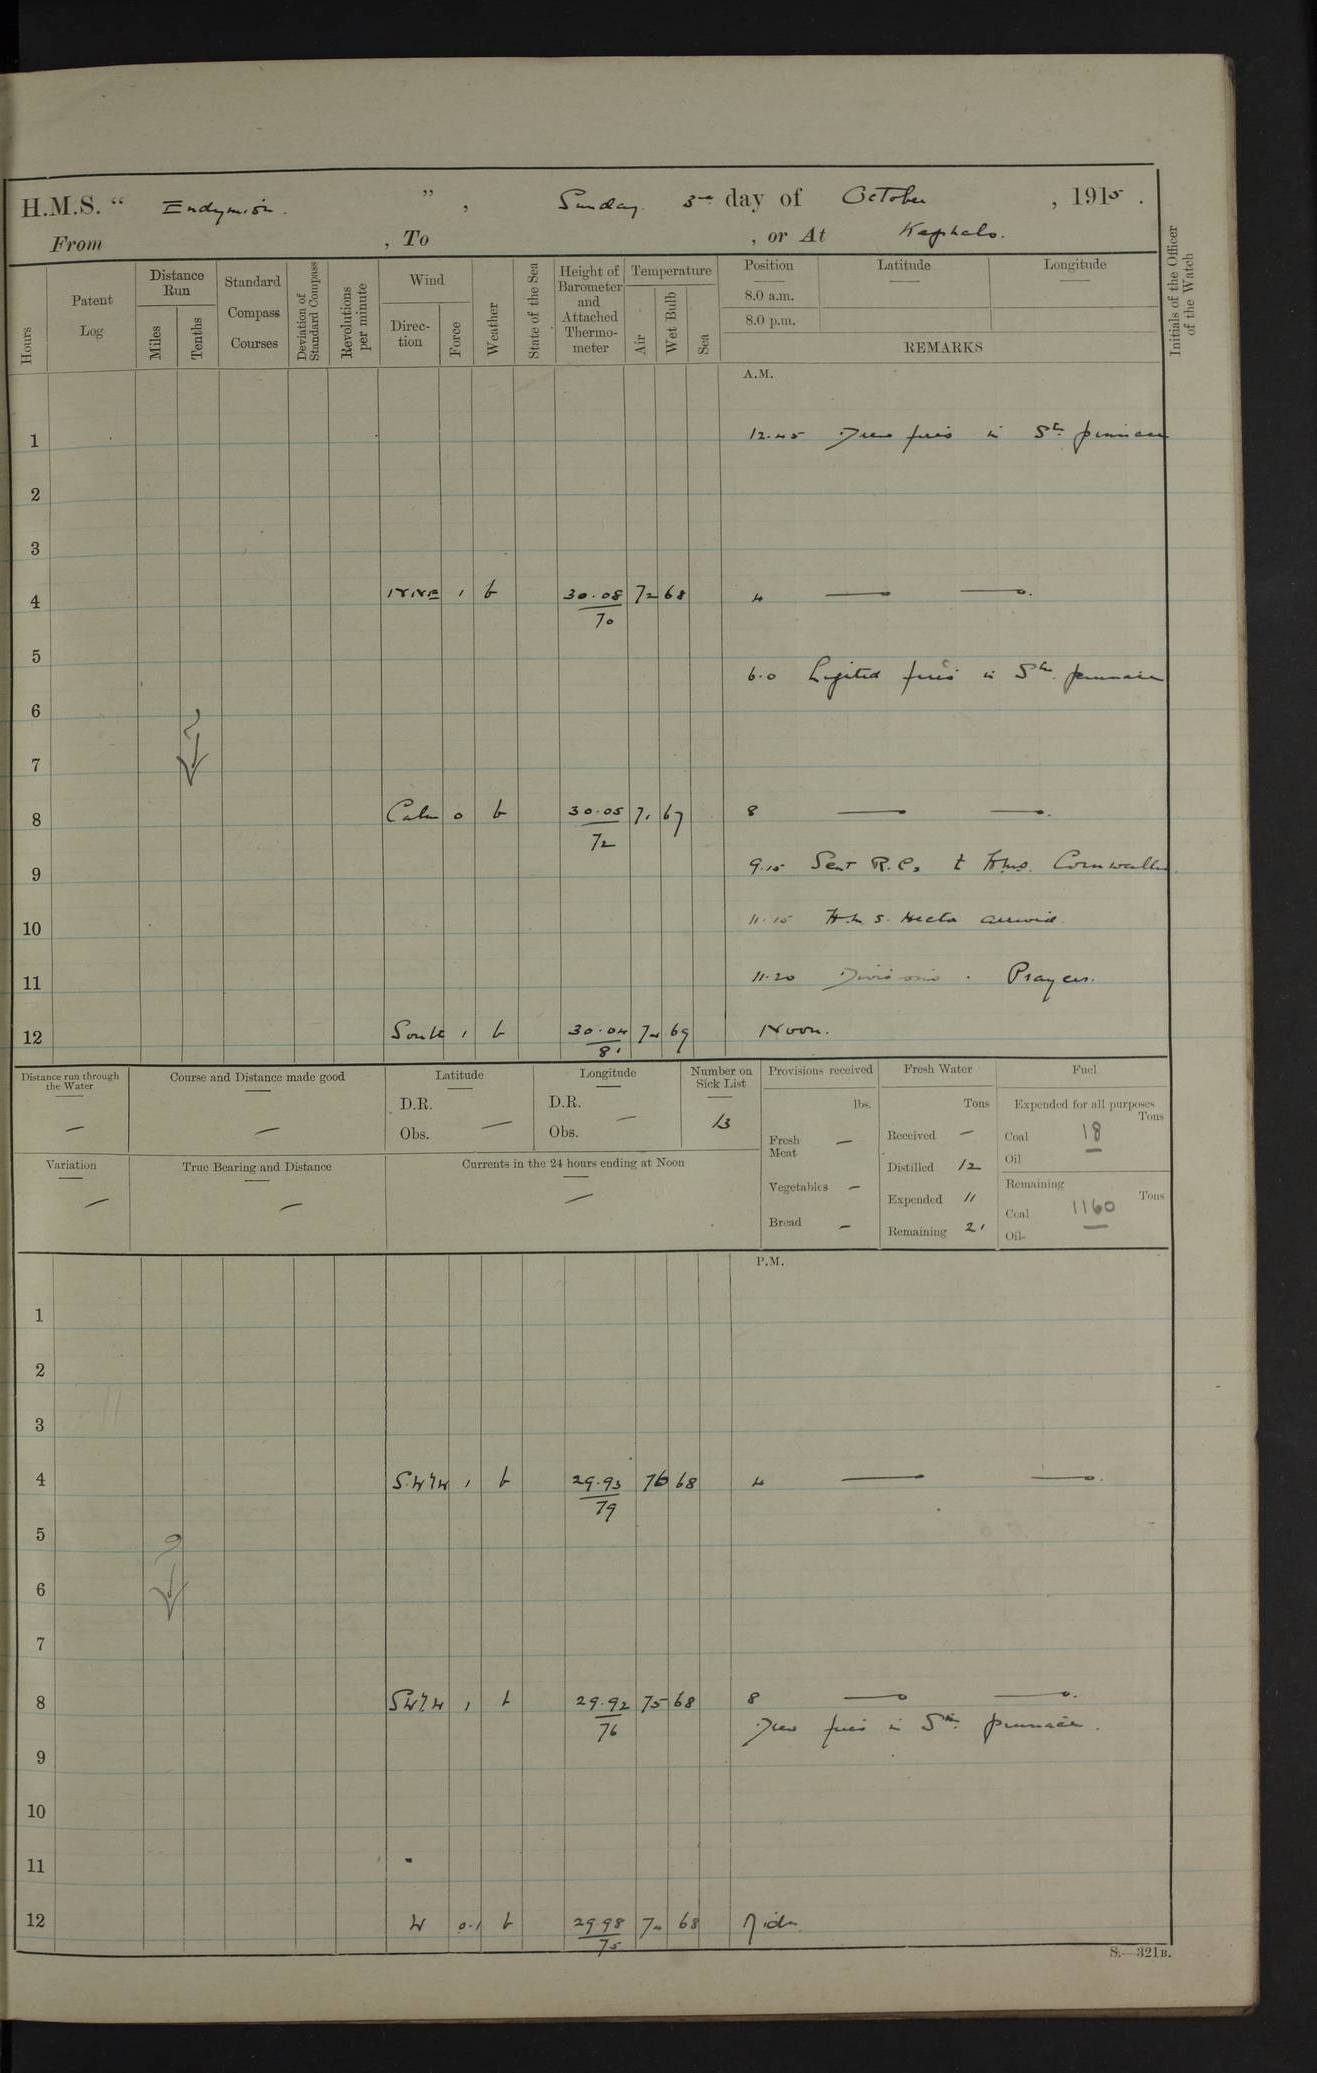 H.M.S. “ Endymion. ” , Sunday 3rd day of October , 1915 .
From , To , or At Kephalo.
Hours
Patent Log
Distance Run
Miles
Tenths
Standard Compass Courses
Deviation of Standard Compass
Revolutions per minute
Wind
Direction
Force
Weather
State of the Sea
Height of Barometer and Attached Thermometer
Temperature
Air
Wet Bulb
Sea
Position
8.0 a.m.
8.0 p.m.
Latitude
Longitude
REMARKS
Initials of the Officer of the Watch
A.M.
1 12.45 Drew fires in Stm pinnace
2
3
4 NNE 1 b 30.08 72 68 4 — —.
70
5
6.0 Lighted fires in Stm. pinnace
6
7
8 Calm 0 b 30.05 71 67 8 — —.
72
9 9.15 Sent R.C.s to H.M.S. Cornwallis
10 11.15 H.M.S. Hecla arrived.
11 11.20 Divisions . Prayers.
12 South 1 b 30.04 74 69 Noon.
81
Distance run through the Water —
Course and Distance made good —
Latitude
D.R.
Obs. —
Longitude
D.R.
Obs. —
Number on Sick List
13
Provisions received
lbs.
Fresh Meat —
Vegetables —
Bread —
Fresh Water
Tons
Received —
Distilled 12
Expended 11
Remaining 21
Fuel
Expended for all purposes
Tons
Coal 18
Oil —
Remaining
Tons
Coal 1160
Oil —
Variation —
True Bearing and Distance —
Currents in the 24 hours ending at Noon —
P.M.
1
2
3
4 1 b 29.93 76 68 4 — —.
79
5
6
7
8 1 b 29.92 75 68 8 — —.
76
Drew fires in Stm. pinnace.
9
10
11
12 W 0.1 b 29.98 74 68 Midt.
75
S.—321B.